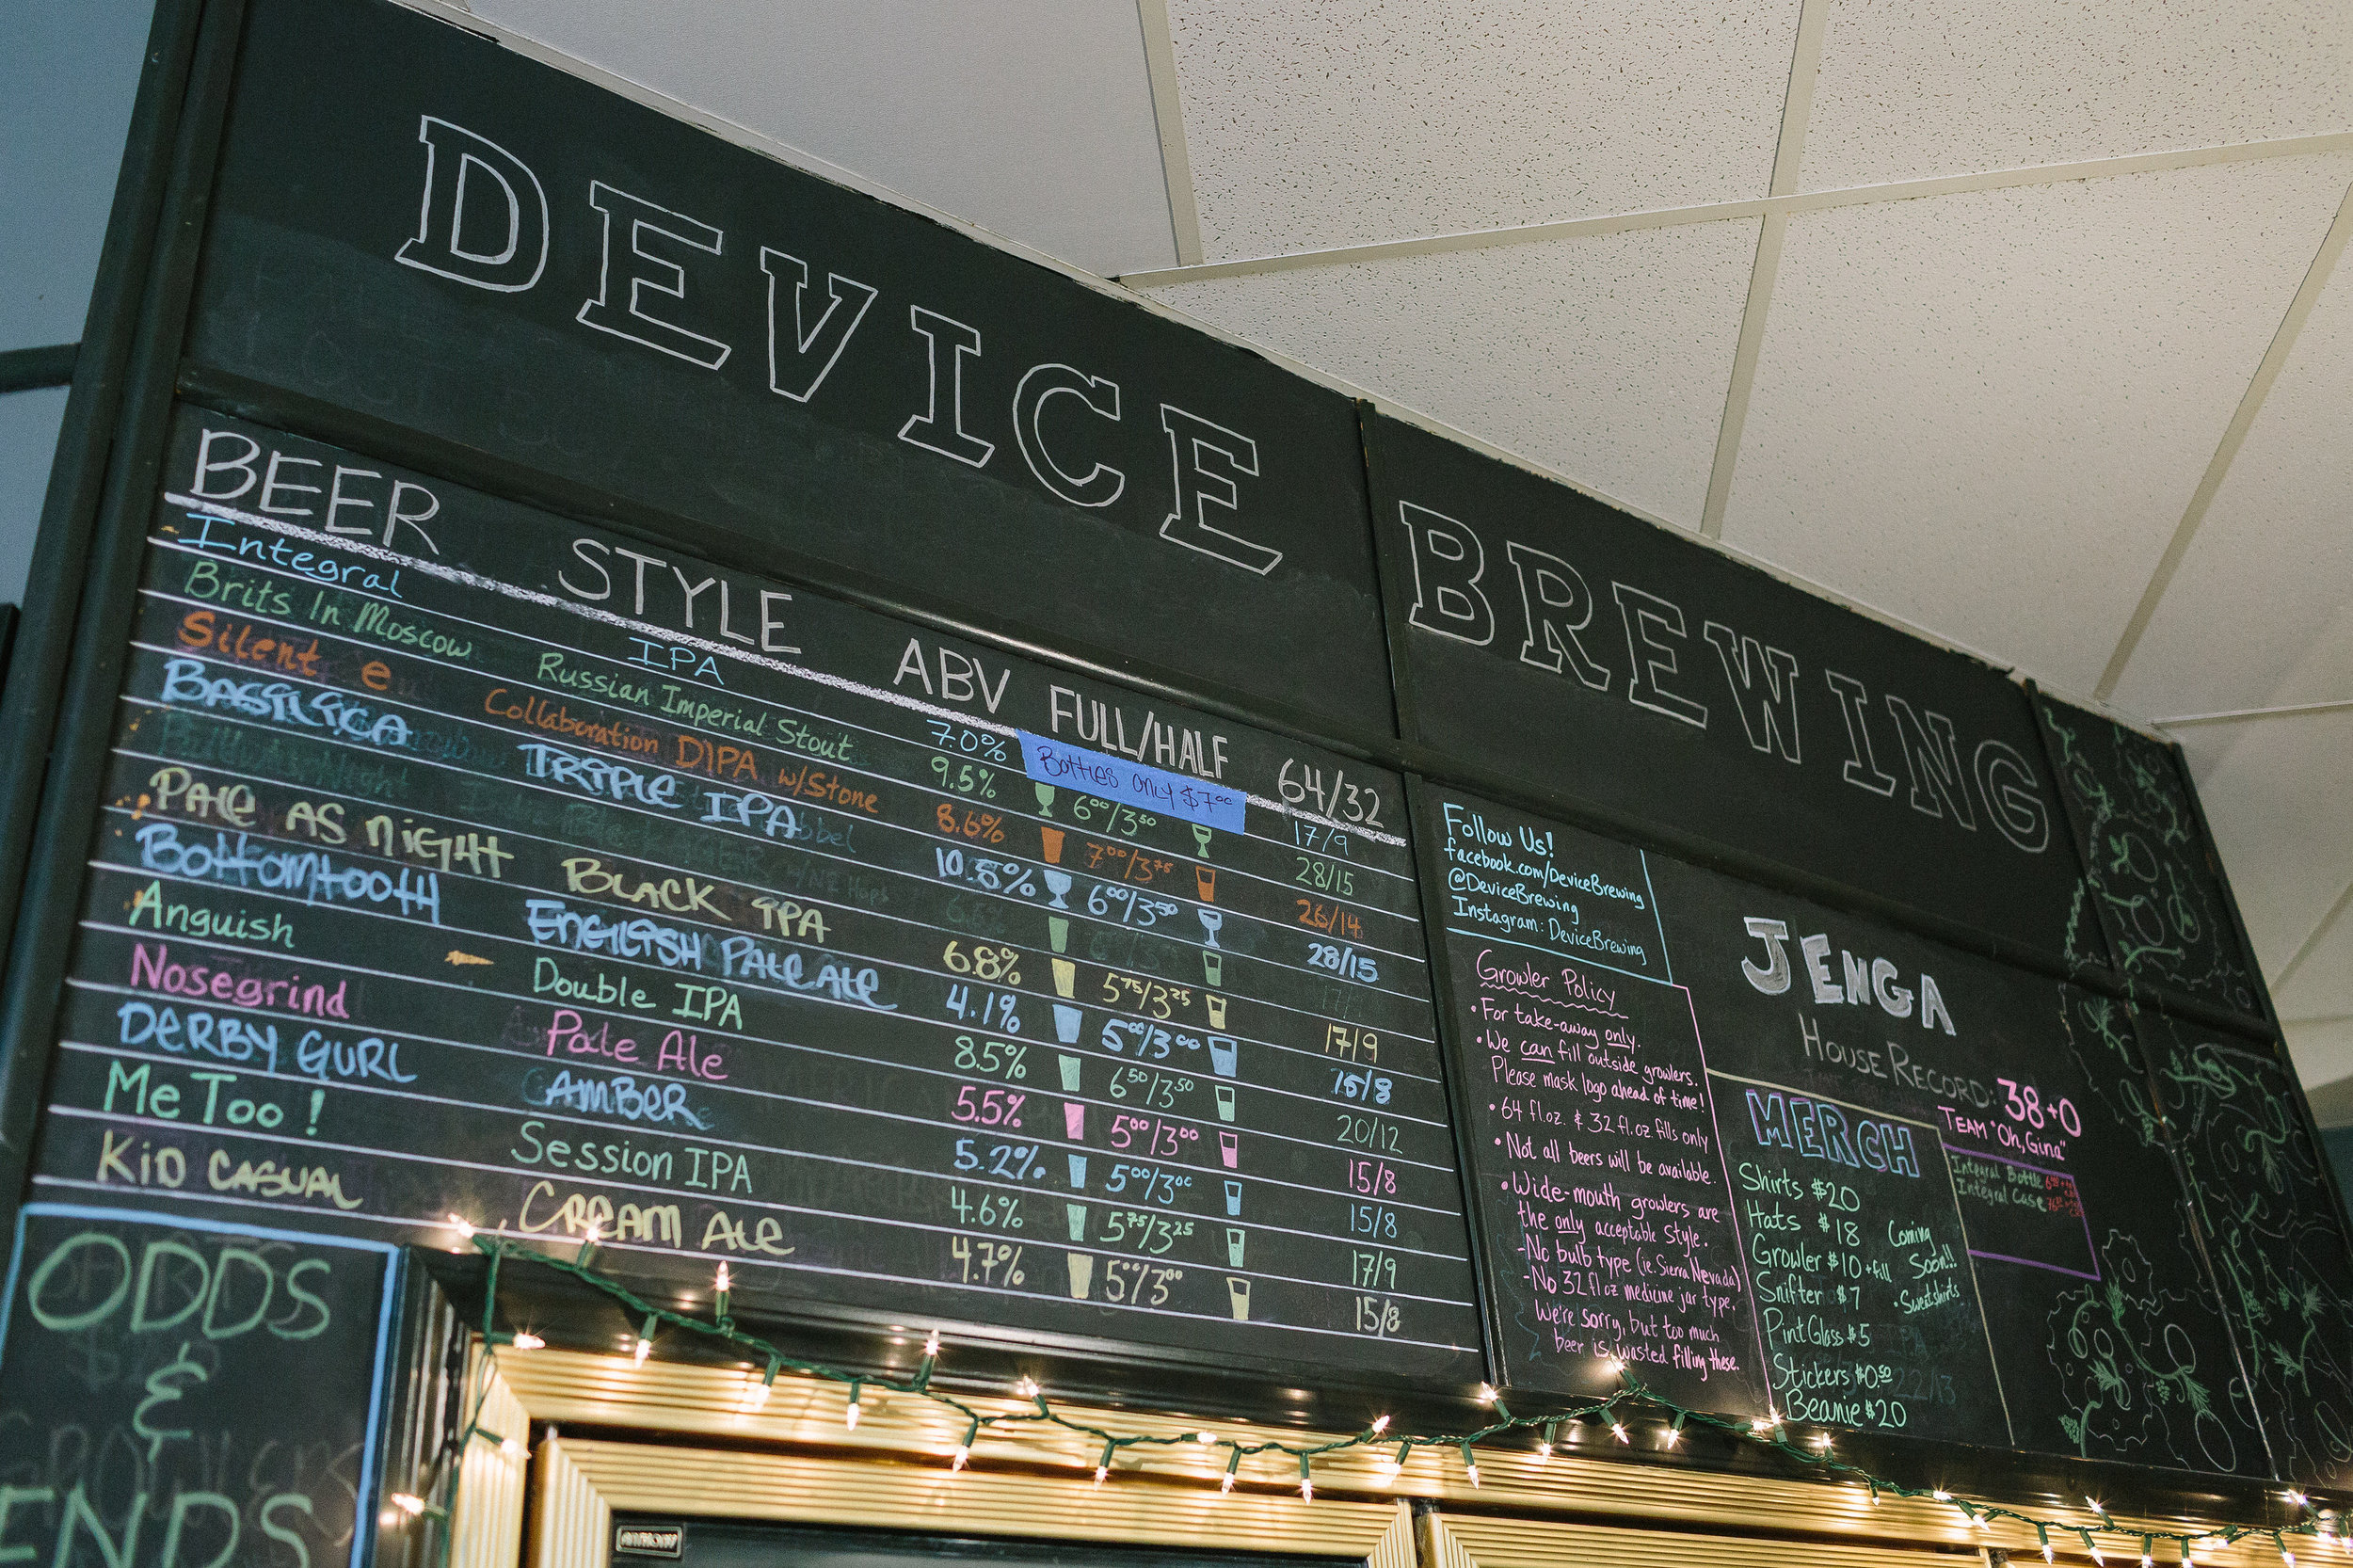 DEVICE BREWING
BEER STYLE ABV FULL/HALF 64/32
Integral IPA 7.0% Bottles only $7⁰⁰ 17/9
Brits In Moscow Russian Imperial Stout 9.5% 6⁰⁰/3⁵⁰ 28/15
Silent e Collaboration DIPA w/Stone 8.6% 7⁰⁰/3⁷⁵ 26/14
BASILICA TRIPLE IPA 10.5% 6⁰⁰/3⁵⁰ 28/15
PALE AS NIGHT BLACK IPA 6.8% 5⁷⁵/3²⁵ 17/9
Bottomtooth ENGLISH PALE Ale 4.1% 5⁰⁰/3⁰⁰ 15/8
Anguish Double IPA 8.5% 6⁵⁰/3⁵⁰ 20/12
Nosegrind Pale Ale 5.5% 5⁰⁰/3⁰⁰ 15/8
DERBY GURL AMBER 5.2% 5⁰⁰/3⁰⁰ 15/8
Me Too! Session IPA 4.6% 5⁷⁵/3²⁵ 17/9
KID CASUAL CREAM ALE 4.7% 5⁰⁰/3⁰⁰ 15/8
ODDS
&
ENDS
Follow Us!
facebook.com/DeviceBrewing
@DeviceBrewing
Instagram: DeviceBrewing
Growler Policy
• For take-away only.
• We can fill outside growlers.
Please mask logo ahead of time!
• 64 fl.oz. & 32 fl.oz. fills only
• Not all beers will be available.
• Wide-mouth growlers are
the only acceptable style.
-No bulb type (ie. Sierra Nevada)
-No 32 fl oz medicine jar type.
We're sorry, but too much
beer is wasted filling these.
JENGA
HOUSE RECORD: 38+0
TEAM "Oh, Gina"
MERCH
Shirts $20
Hats $18
Growler $10 + fill
Snifter $7
Pint Glass $5
Stickers $0.⁵⁰
Beanie $20
Coming
Soon!!
• Sweatshirts
Integral Bottle
Integral Case